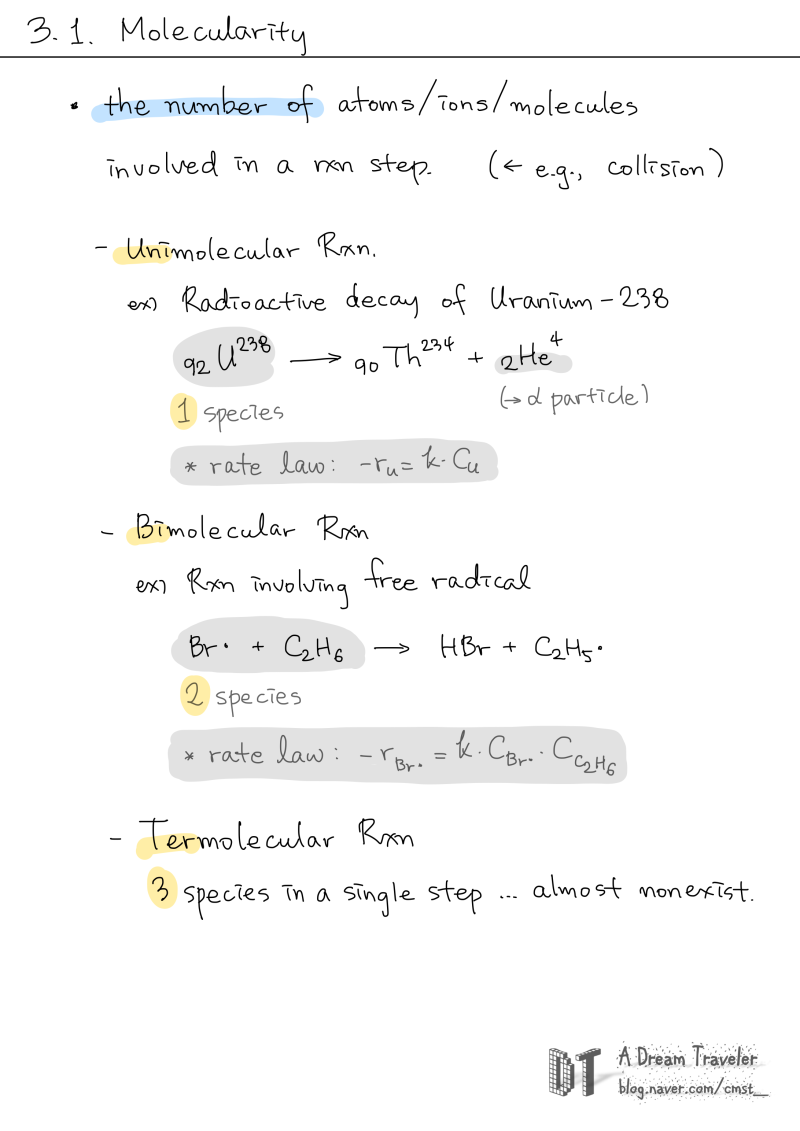 3.1. Molecularity
• the number of atoms/ions/molecules
involved in a rxn step. (← e.g., collision)
- Unimolecular Rxn.
ex) Radioactive decay of Uranium-238
₉₂U²³⁸ → ₉₀Th²³⁴ + ₂He⁴
1 species (→ α particle)
* rate law: -r_u = k·C_u
- Bimolecular Rxn
ex) Rxn involving free radical
Br· + C₂H₆ → HBr + C₂H₅·
2 species
* rate law: -r_Br· = k·C_Br·· C_C₂H₆
- Termolecular Rxn
3 species in a single step ... almost nonexist.
DT A Dream Traveler
blog.naver.com/cmst_